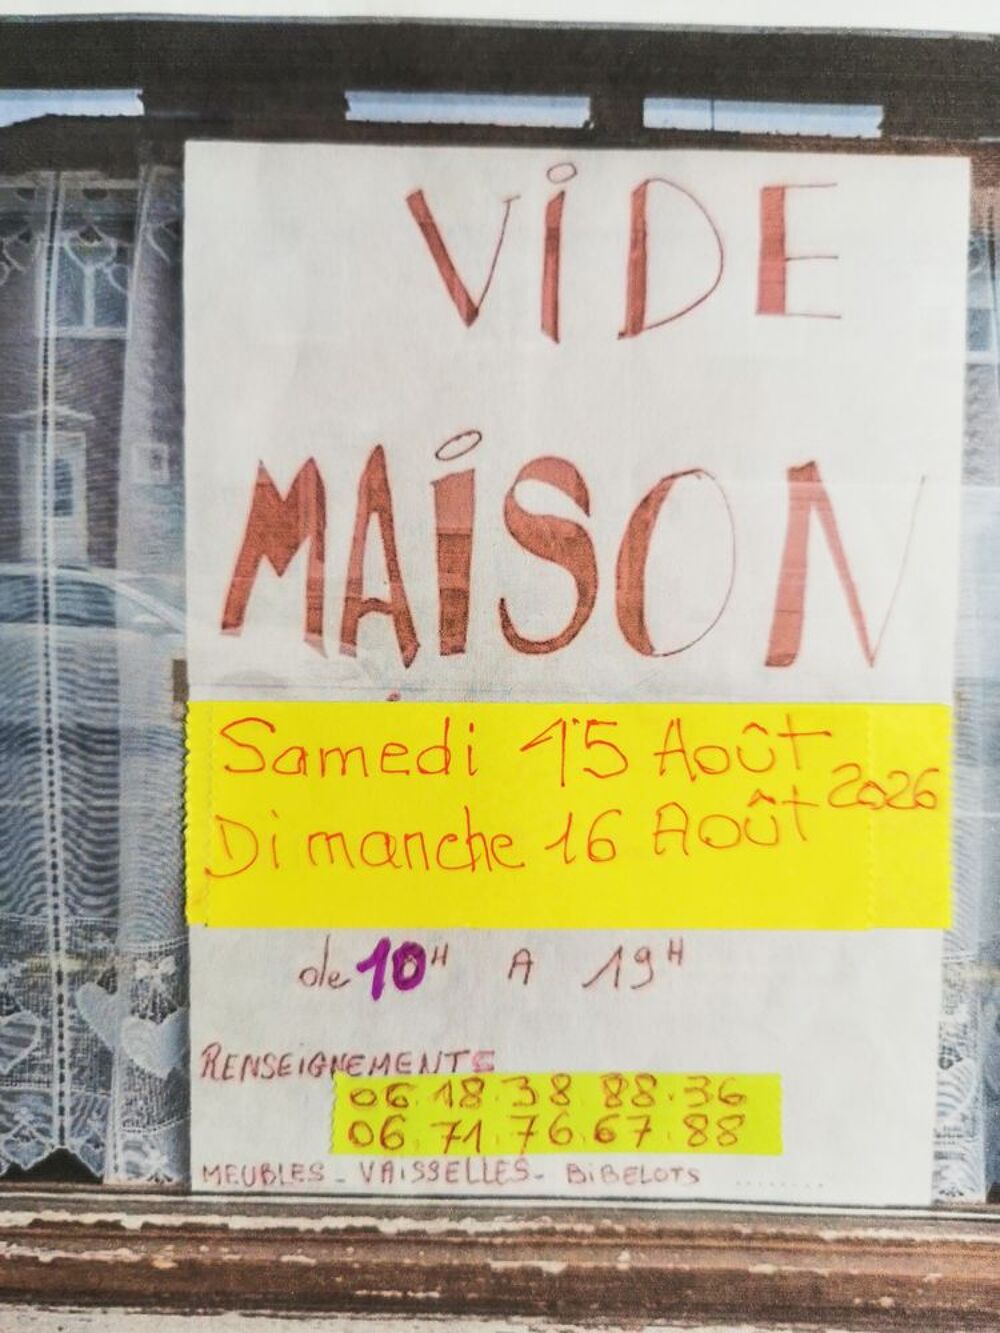 ViDE
MAiSON
Samedi 15 Août
2026
Dimanche 16 Août
de 10H A 19H
RENSEIGNEMENTS
06.18.38.88.36
06.71.76.67.88
MEUBLES - VAISSELLES - BiBELOTS .........